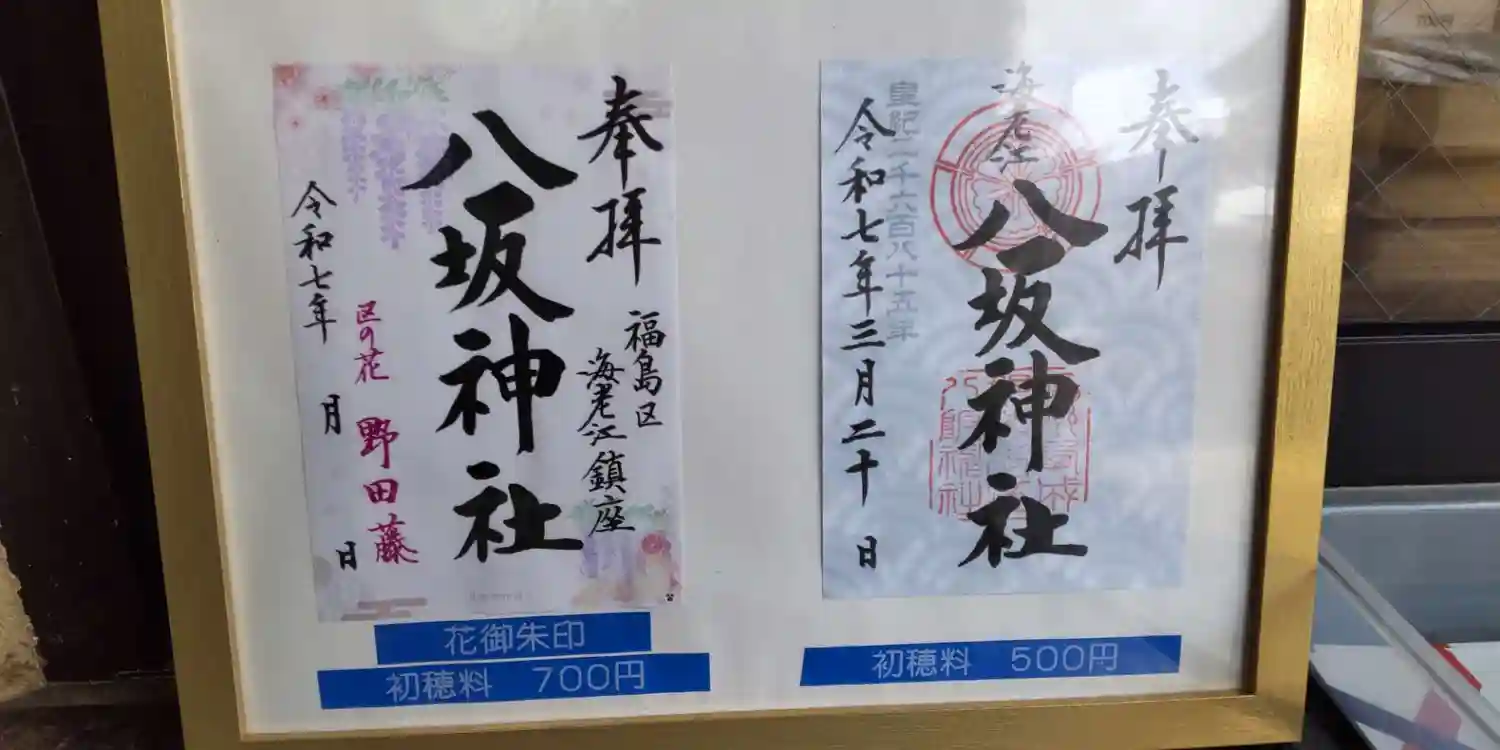 奉拝
福島区
海老江鎮座
八坂神社
区の花 野田藤
令和七年 月 日
花御朱印
初穂料 700円
奉拝
海老江
八坂神社
皇紀二千六百八十五年
令和七年三月二十日
初穂料 500円